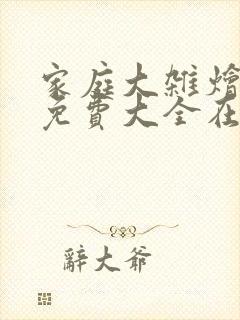 家庭大雜燴
免費大全在
辭大爺